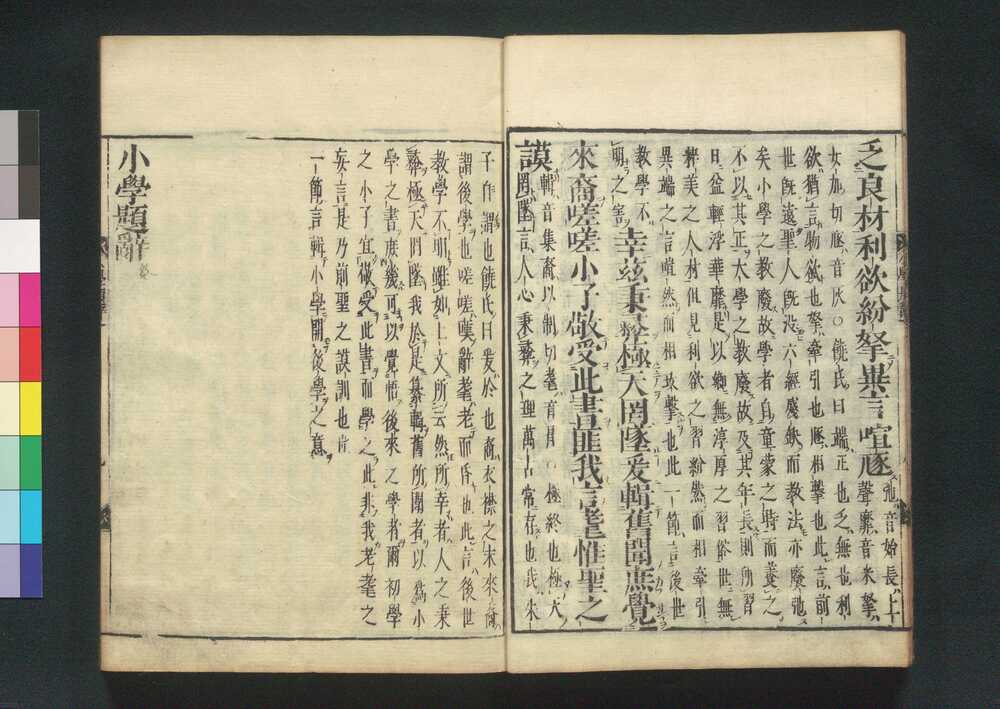 乏良材利欲紛拏異言喧豗
弛音始長上
聲靡音米拏
女加切豗音灰○饒氏曰端正也乏無也利
欲猶言物欲也拏牽引也豗相擊也此言前
世既遠聖人既沒六經殘缺而教法亦廢弛
矣小學之教廢故學者自童蒙之時而養之
不以其正大學之教廢故及其年長則所習
日益輕浮華靡是以鄉無淳厚之俗世無
粹美之人材但見利欲之習紛然而相牽引
異端之言喧然而相攻擊也此一節言後世
教學不
明之害
幸茲秉彝極天罔墜爰輯舊聞庶覺
來裔嗟嗟小子敬受此書匪我言耄惟聖之
謨
輯音集裔以制切耄音冒○極終也極天
罔墜言人心秉彝之理萬古常存也我朱
子自謂也饒氏曰爰於也裔衣襟之末來裔
謂後學也嗟嗟嘆辭耄老而昏也此言後世
教學不明雖如上文所云然所幸者人之秉
彝極天罔墜我於是纂輯舊所聞者以為小
學之書庶幾可以覺悟後來之學者爾初學
之小子宜敬受此書而學之此非我老耄之
妄言是乃前聖之謨訓也
一節言輯小學開後學之意
小學題辭